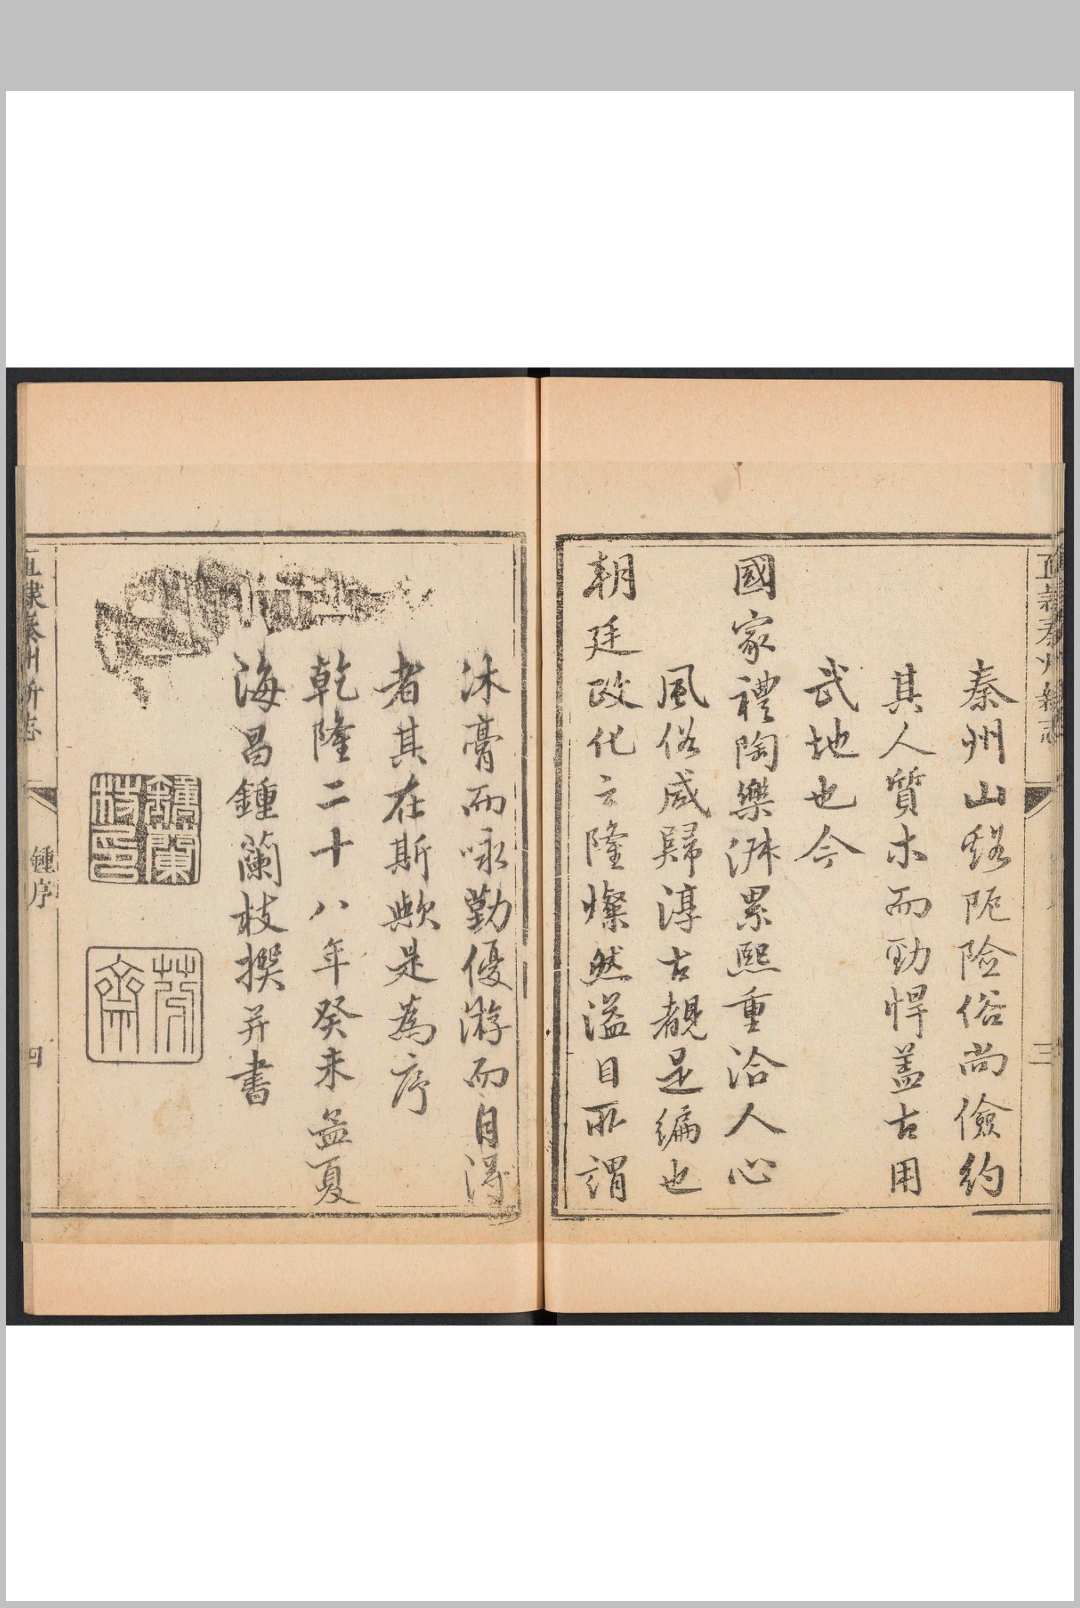 直隸秦州新志
三
秦州山谿阨險俗尚儉約
其人質木而勁悍盖古用
武地也今
國家禮陶樂淑累熙重洽人心
風俗咸歸淳古覩是編也
朝廷政化之隆燦然溢目所謂
沐膏而咏勤優游而自得
者其在斯歟是為序
乾隆二十八年癸未孟夏
海昌鍾蘭枝撰并書
鍾蘭枝印
直隸秦州新志
鍾序
四